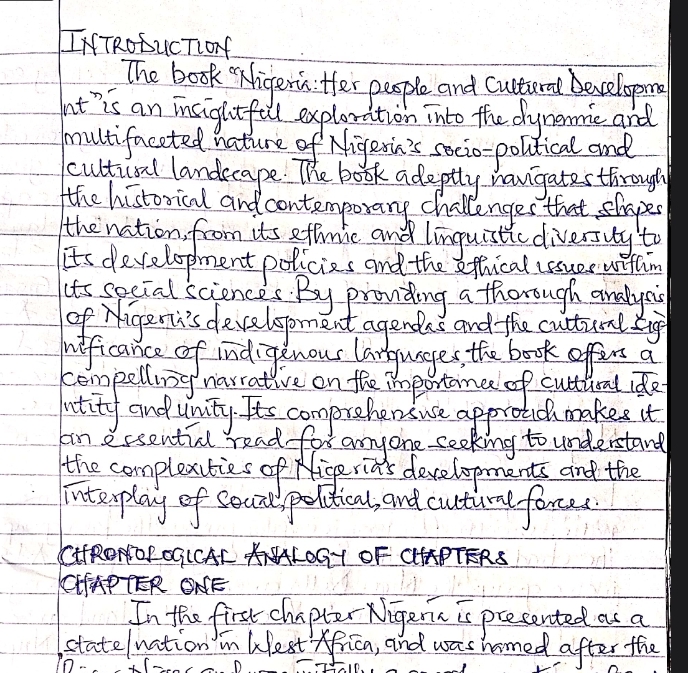 INTRODUCTION
The book "Nigeria: Her people and Cultural Developme
nt" is an insightful exploration into the dynamic and
multifaceted nature of Nigeria's socio-political and
cultural landscape. The book adeptly navigates through
the historical and contemporary challenges that shapes
the nation, from its ethnic and linguistic diversity to
its development policies and the ethical issues within
its social sciences. By providing a thorough analysis
of Nigeria's development agendas and the cultural sig-
nificance of indigenous languages, the book offers a
compelling narrative on the importance of cultural ide-
ntity and unity. Its comprehensive approach makes it
an essential read for anyone seeking to understand
the complexities of Nigeria's developments and the
interplay of social, political, and cultural forces.
CHRONOLOGICAL ANALOGY OF CHAPTERS
CHAPTER ONE
In the first chapter Nigeria is presented as a
state/nation in West Africa, and was named after the